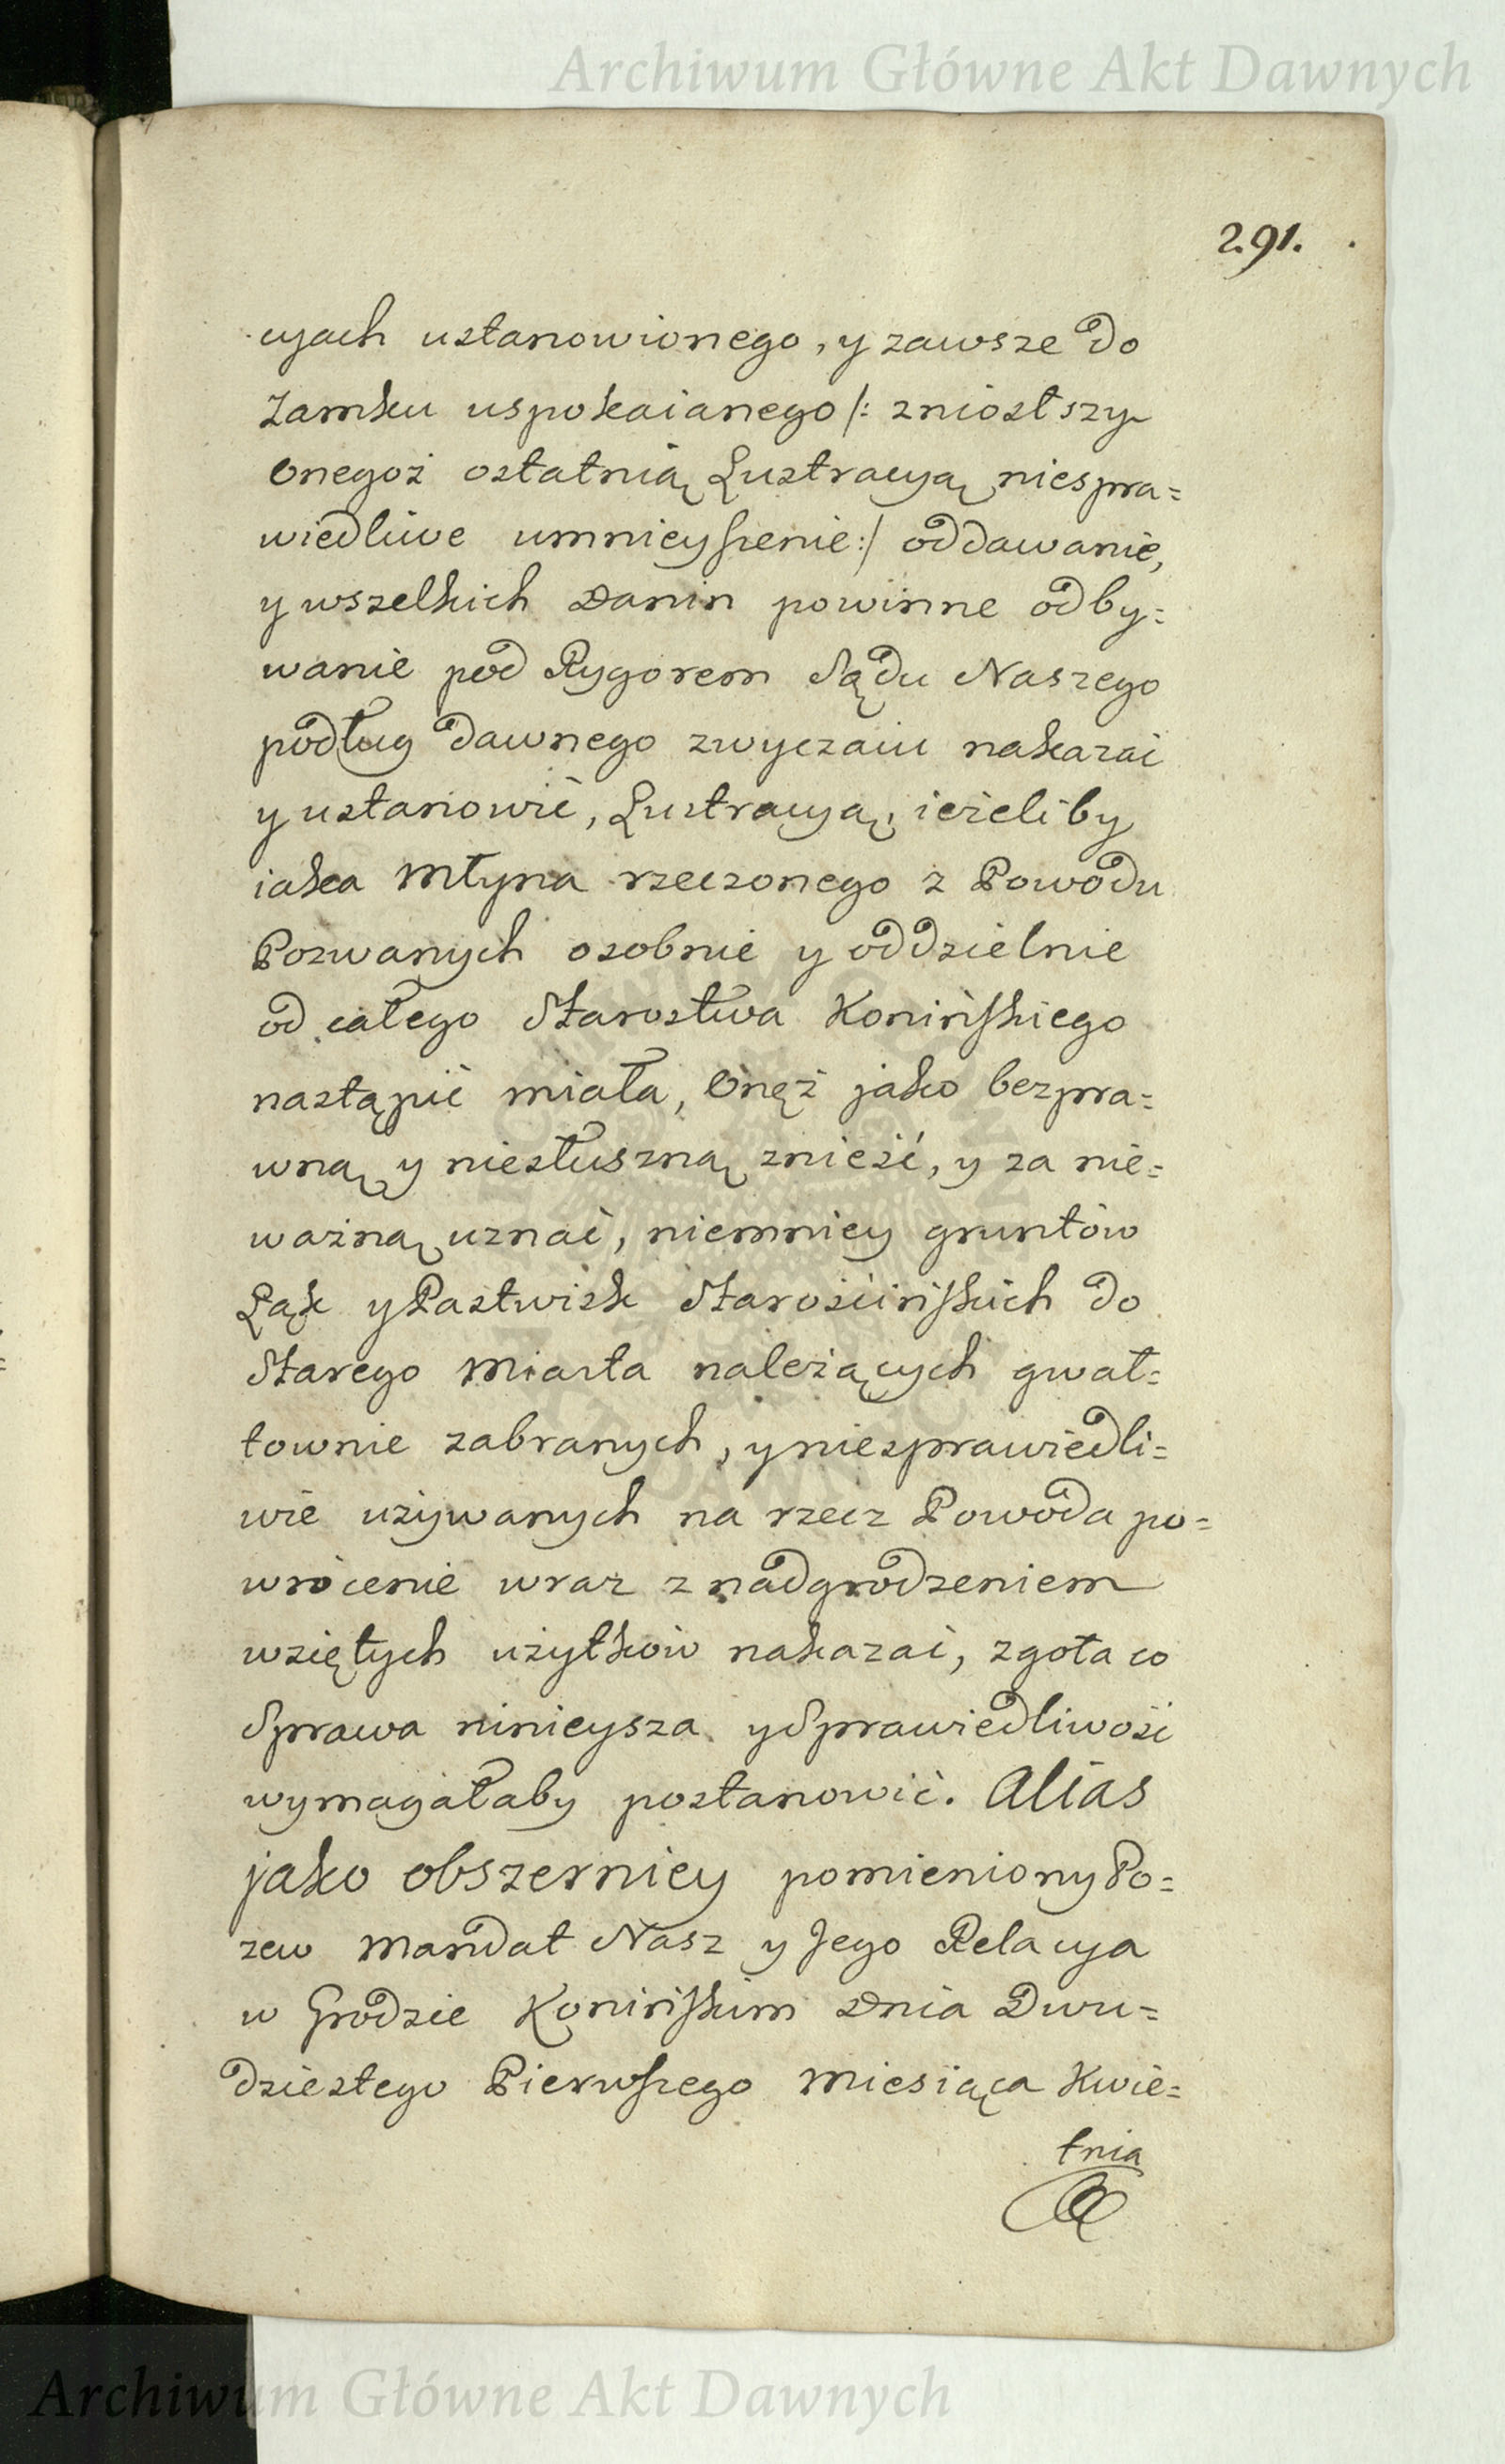 Archiwum Główne Akt Dawnych
291.
cyach ustanowionego, y zawsze do
Zamku uspokaianego /: zniosłszy
Onegoż ostatnią Lustracyą niespra=
wiedliwe umnieyszenie :/ oddawanie,
y wszelkich Danin powinne odby=
wanie pod Rygorem Sądu Naszego
podług dawnego zwyczaiu nakazać
y ustanowić, Lustracyą, ieżeliby
iaka Młyna rzeczonego z Powodu
Pozwanych osobnie y oddzielnie
od całego Starostwa Konińskiego
nastąpić miała, Onęż jako bezpra=
wną y niesłuszną znieść, y za nie=
ważną uznać, niemniey gruntów
Łąk y Pastwisk Starościńskich do
Starego Miasta należących gwał=
townie zabranych, y niesprawiedli=
wie używanych na rzecz Powoda po=
wrócenie wraz z nadgrodzeniem
wziętych użytków nakazać, zgoła co
Sprawa ninieysza y Sprawiedliwość
wymagałaby postanowić. Alias
jako obszerniey pomieniony Po=
zew Mandat Nasz y Jego Relacya
w Grodzie Konińskim Dnia Dwu=
dziestego Pierwszego Miesiąca Kwie=
tnia
Archiwum Główne Akt Dawnych